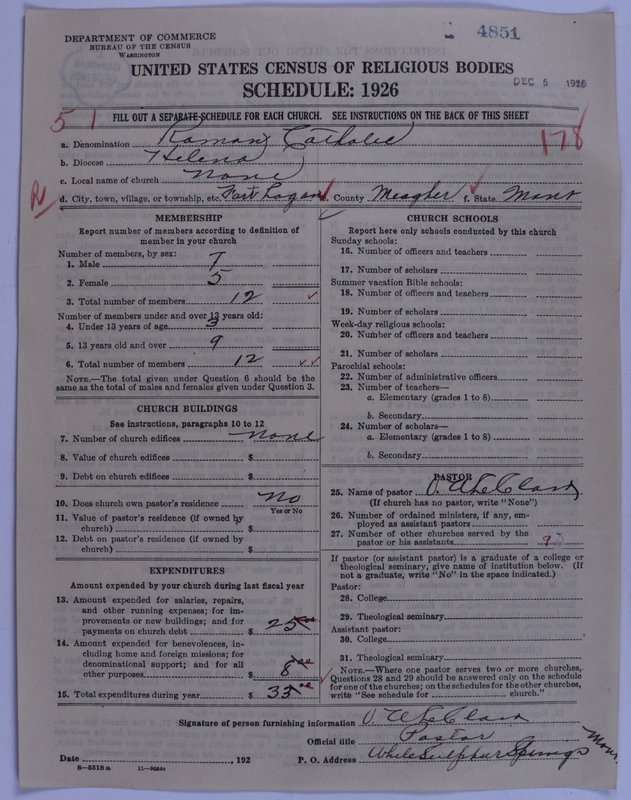 DEPARTMENT OF COMMERCE
BUREAU OF THE CENSUS
WASHINGTON
4851
UNITED STATES CENSUS OF RELIGIOUS BODIES
SCHEDULE: 1926
DEC 6 1926
51
FILL OUT A SEPARATE SCHEDULE FOR EACH CHURCH. SEE INSTRUCTIONS ON THE BACK OF THIS SHEET
178
a. Denomination Roman Catholic
b. Diocese Helena
c. Local name of church None
d. City, town, village, or township, etc. Fort Logan e. County Meagher f. State Mont
MEMBERSHIP
Report number of members according to definition of member in your church
Number of members, by sex:
1. Male 7
2. Female 5
3. Total number of members 12
Number of members under and over 13 years old:
4. Under 13 years of age 3
5. 13 years old and over 9
6. Total number of members 12
NOTE.—The total given under Question 6 should be
same as the total of males and females given under Question 3.
CHURCH BUILDINGS
See instructions, paragraphs 10 to 12
7. Number of church edifices none
8. Value of church edifices $
9. Debt on church edifices $
10. Does church own pastor's residence No
Yes or No
11. Value of pastor's residence (if owned by
church) $
12. Debt on pastor's residence (if owned by
church) $
EXPENDITURES
Amount expended by your church during last fiscal year
13. Amount expended for salaries, repairs,
and other running expenses; for im-
provements or new buildings; and for
payments on church debt $ 25.00
14. Amount expended for benevolences, in-
cluding home and foreign missions; for
denominational support; and for all
other purposes $ 8.00
15. Total expenditures during year $ 33.00
CHURCH SCHOOLS
Report here only schools conducted by this church
Sunday schools:
16. Number of officers and teachers
17. Number of scholars
Summer vacation Bible schools:
18. Number of officers and teachers
19. Number of scholars
Week-day religious schools:
20. Number of officers and teachers
21. Number of scholars
Parochial schools:
22. Number of administrative officers
23. Number of teachers—
a. Elementary (grades 1 to 8)
b. Secondary
24. Number of scholars—
a. Elementary (grades 1 to 8)
b. Secondary
PASTOR
25. Name of pastor
(If church has no pastor, write "None")
26. Number of ordained ministers, if any, em-
ployed as assistant pastors
27. Number of other churches served by the
pastor or his assistants
If pastor (or assistant pastor) is a graduate of a college or
theological seminary, give name of institution below. (If
not a graduate, write "No" in the space indicated.)
Pastor:
28. College
29. Theological seminary
Assistant pastor:
30. College
31. Theological seminary
NOTE.—Where one pastor serves two or more churches,
Questions 28 and 29 should be answered only on the schedule
for one of the churches; on the schedules for the other churches,
write "See schedule for church."
Signature of person furnishing information
Official title Pastor
Date , 192 P. O. Address White Sulphur Springs Mont.
8—5518a 11—9054a